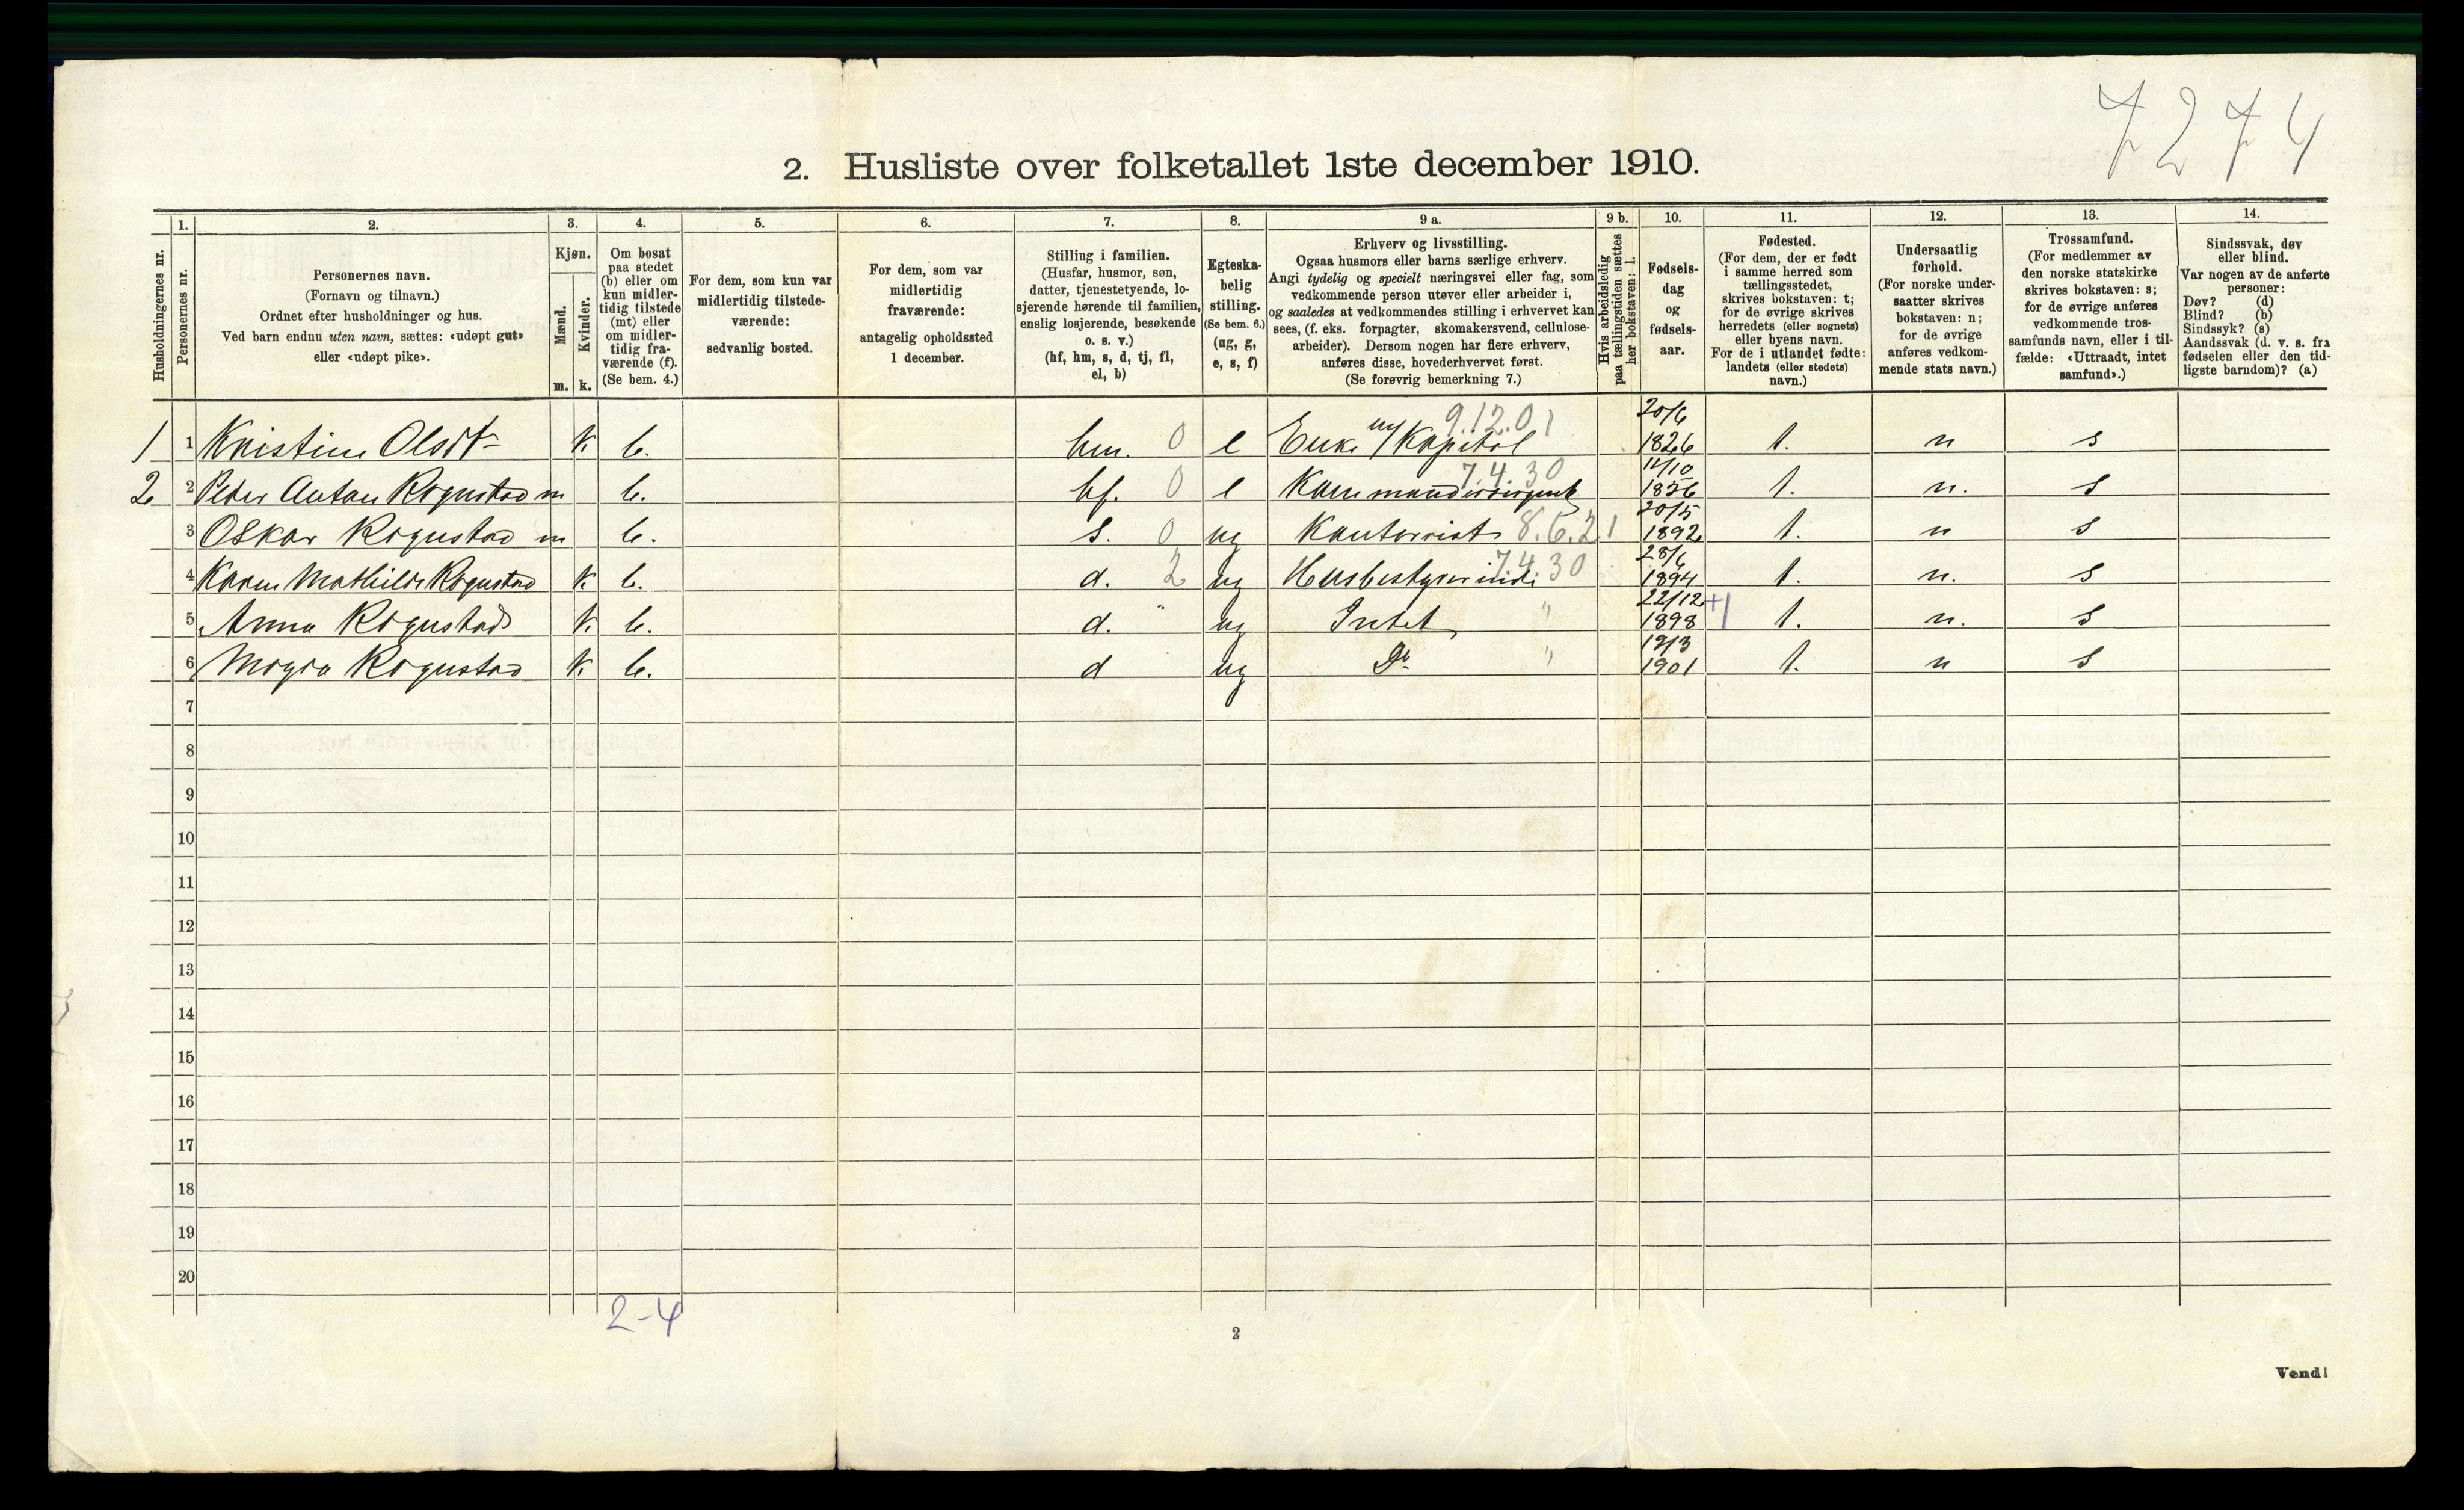 7274
2. Husliste over folketallet 1ste december 1910.
Husholdningernes nr.
1.
Personernes nr.
2.
Personernes navn.
(Fornavn og tilnavn.)
Ordnet efter husholdninger og hus.
Ved barn endnu uten navn, sættes: «udøpt gut»
eller «udøpt pike».
3.
Kjøn.
Mænd.
Kvinder.
m. k.
4.
Om bosat
paa stedet
(b) eller om
kun midler-
tidig tilstede
(mt) eller
om midler-
tidig fra-
værende (f).
(Se bem. 4.)
5.
For dem, som kun var
midlertidig tilstede-
værende:
sedvanlig bosted.
6.
For dem, som var
midlertidig
fraværende:
antagelig opholdssted
1 december.
7.
Stilling i familien.
(Husfar, husmor, søn,
datter, tjenestetyende, lo-
sjerende hørende til familien,
enslig losjerende, besøkende
o. s. v.)
(hf, hm, s, d, tj, fl,
el, b)
8.
Egteska-
belig
stilling.
(Se bem. 6.)
(ug, g,
e, s, f)
9 a.
Erhverv og livsstilling.
Ogsaa husmors eller barns særlige erhverv.
Angi tydelig og specielt næringsvei eller fag, som
vedkommende person utøver eller arbeider i,
og saaledes at vedkommendes stilling i erhvervet kan
sees, (f. eks. forpagter, skomakersvend, cellulose-
arbeider). Dersom nogen har flere erhverv,
anføres disse, hovederhvervet først.
(Se forøvrig bemerkning 7.)
9 b.
Hvis arbeidsledig
paa tællingstiden sættes
her bokstaven: l.
10.
Fødsels-
dag
og
fødsels-
aar.
11.
Fødested.
(For dem, der er født
i samme herred som
tællingsstedet,
skrives bokstaven: t;
for de øvrige skrives
herredets (eller sognets)
eller byens navn.
For de i utlandet fødte:
landets (eller stedets)
navn.)
12.
Undersaatlig
forhold.
(For norske under-
saatter skrives
bokstaven: n;
for de øvrige
anføres vedkom-
mende stats navn.)
13.
Trossamfund.
(For medlemmer av
den norske statskirke
skrives bokstaven: s;
for de øvrige anføres
vedkommende tros-
samfunds navn, eller i til-
fælde: «Uttraadt, intet
samfund».)
14.
Sindssvak, døv
eller blind.
Var nogen av de anførte
personer:
Døv? (d)
Blind? (b)
Sindssyk? (s)
Aandssvak (d. v. s. fra
fødselen eller den tid-
ligste barndom)? (a)
1 1 k. b. hm. 0 e Enke m/ Kapital 9.12.01 20/6 1826 t. n s
2 2 Peter Anton Rognstad m b. hf. 0 e 7.4.30 1856 t. n. s
3 Oskar Rognstad m b. s. 0 ug Kontorist 8.6.21 20/5 1892 t. n s
4 Karen Mathilde Rognstad k. b. d. 2 ug Husbestyrerinde 7.4.30 28/6 1894 t. n. s
5 Anna Rognstad k. b. d. " ug Intet " 22/12 1898 t. n. s
6 Rognstad k. b. d ug Do " 19/3 1901 t. n s
7
8
9
10
11
12
13
14
15
16
17
18
19
20
2-4
2
Vend!